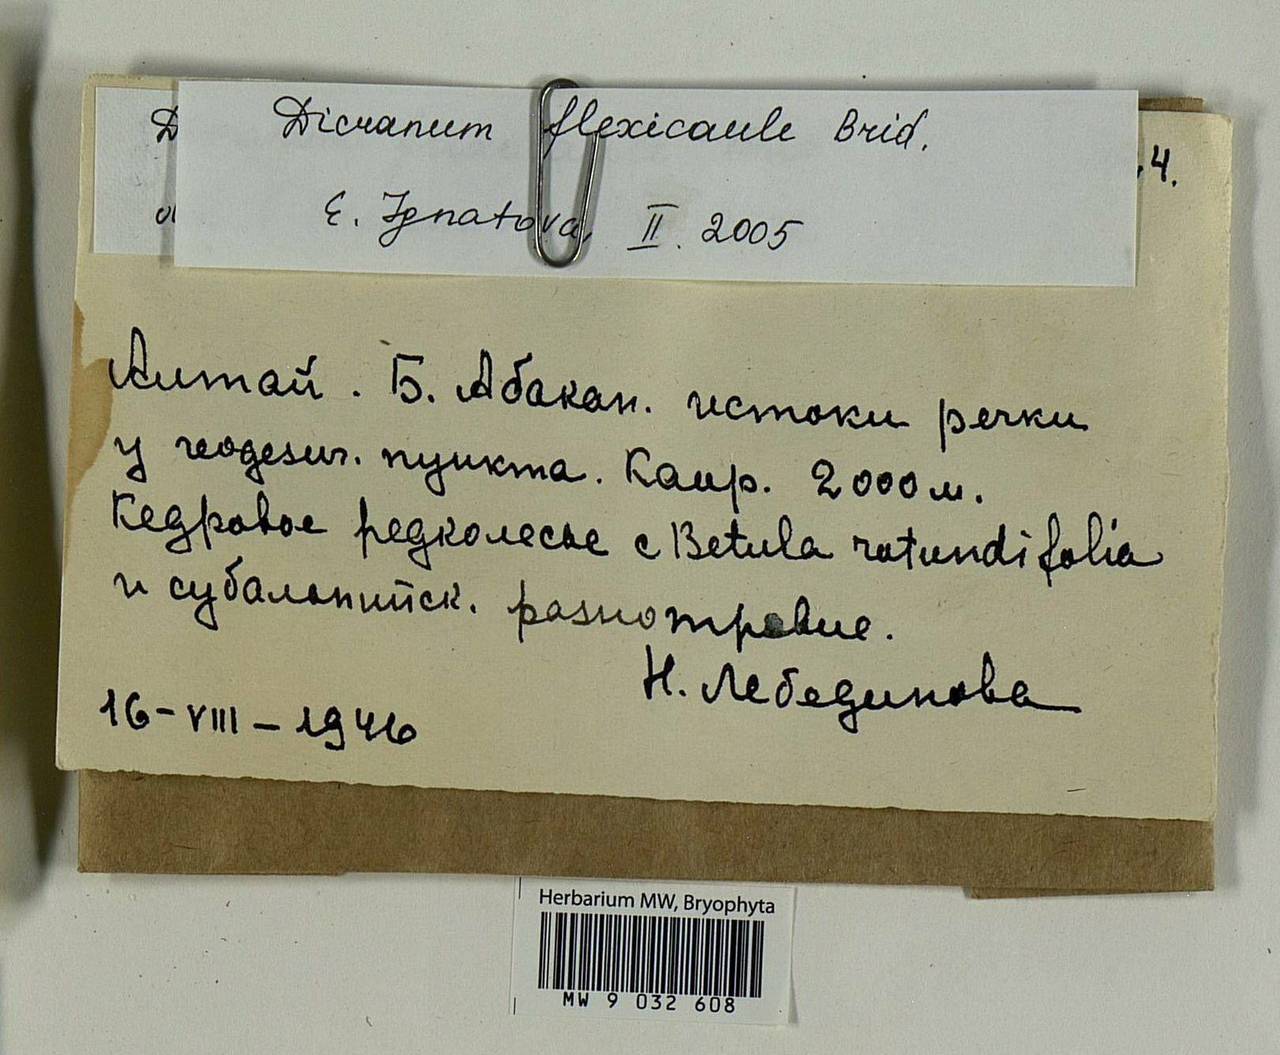 Dicranum flexicaule Brid.
E. Ignatova, II. 2005
.4.
Алтай. Б. Абакан. истоки речки
у геодезич. пункта. Каир. 2000 м.
Кедровое редколесье с Betula rotundifolia
и субальпийск. разнотравие.
Н. Лебединова
16-VIII-1946
Herbarium MW, Bryophyta
MW 9 032 608